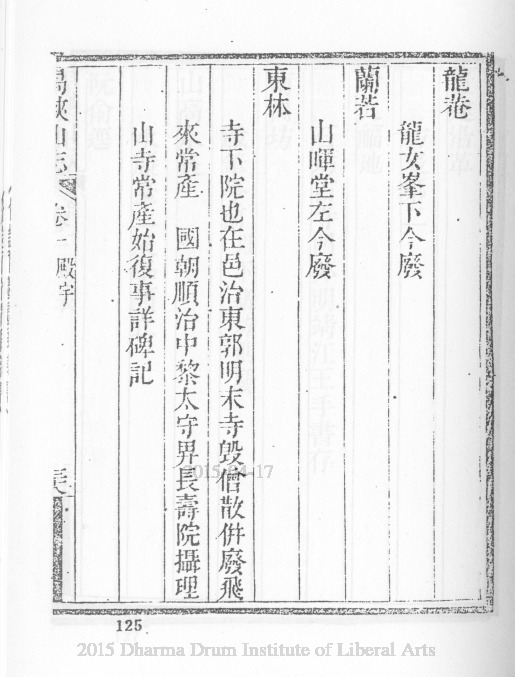 龍菴
龍女峯下今廢
蘭若
山暉堂左今廢
東林
寺下院也在邑治東郭明末寺毀僧散併廢飛
來常產 國朝順治中黎太守昇長壽院攝理
山寺常產始復事詳碑記
峽山志 卷一 殿宇
125
2015-04-17
2015 Dharma Drum Institute of Liberal Arts